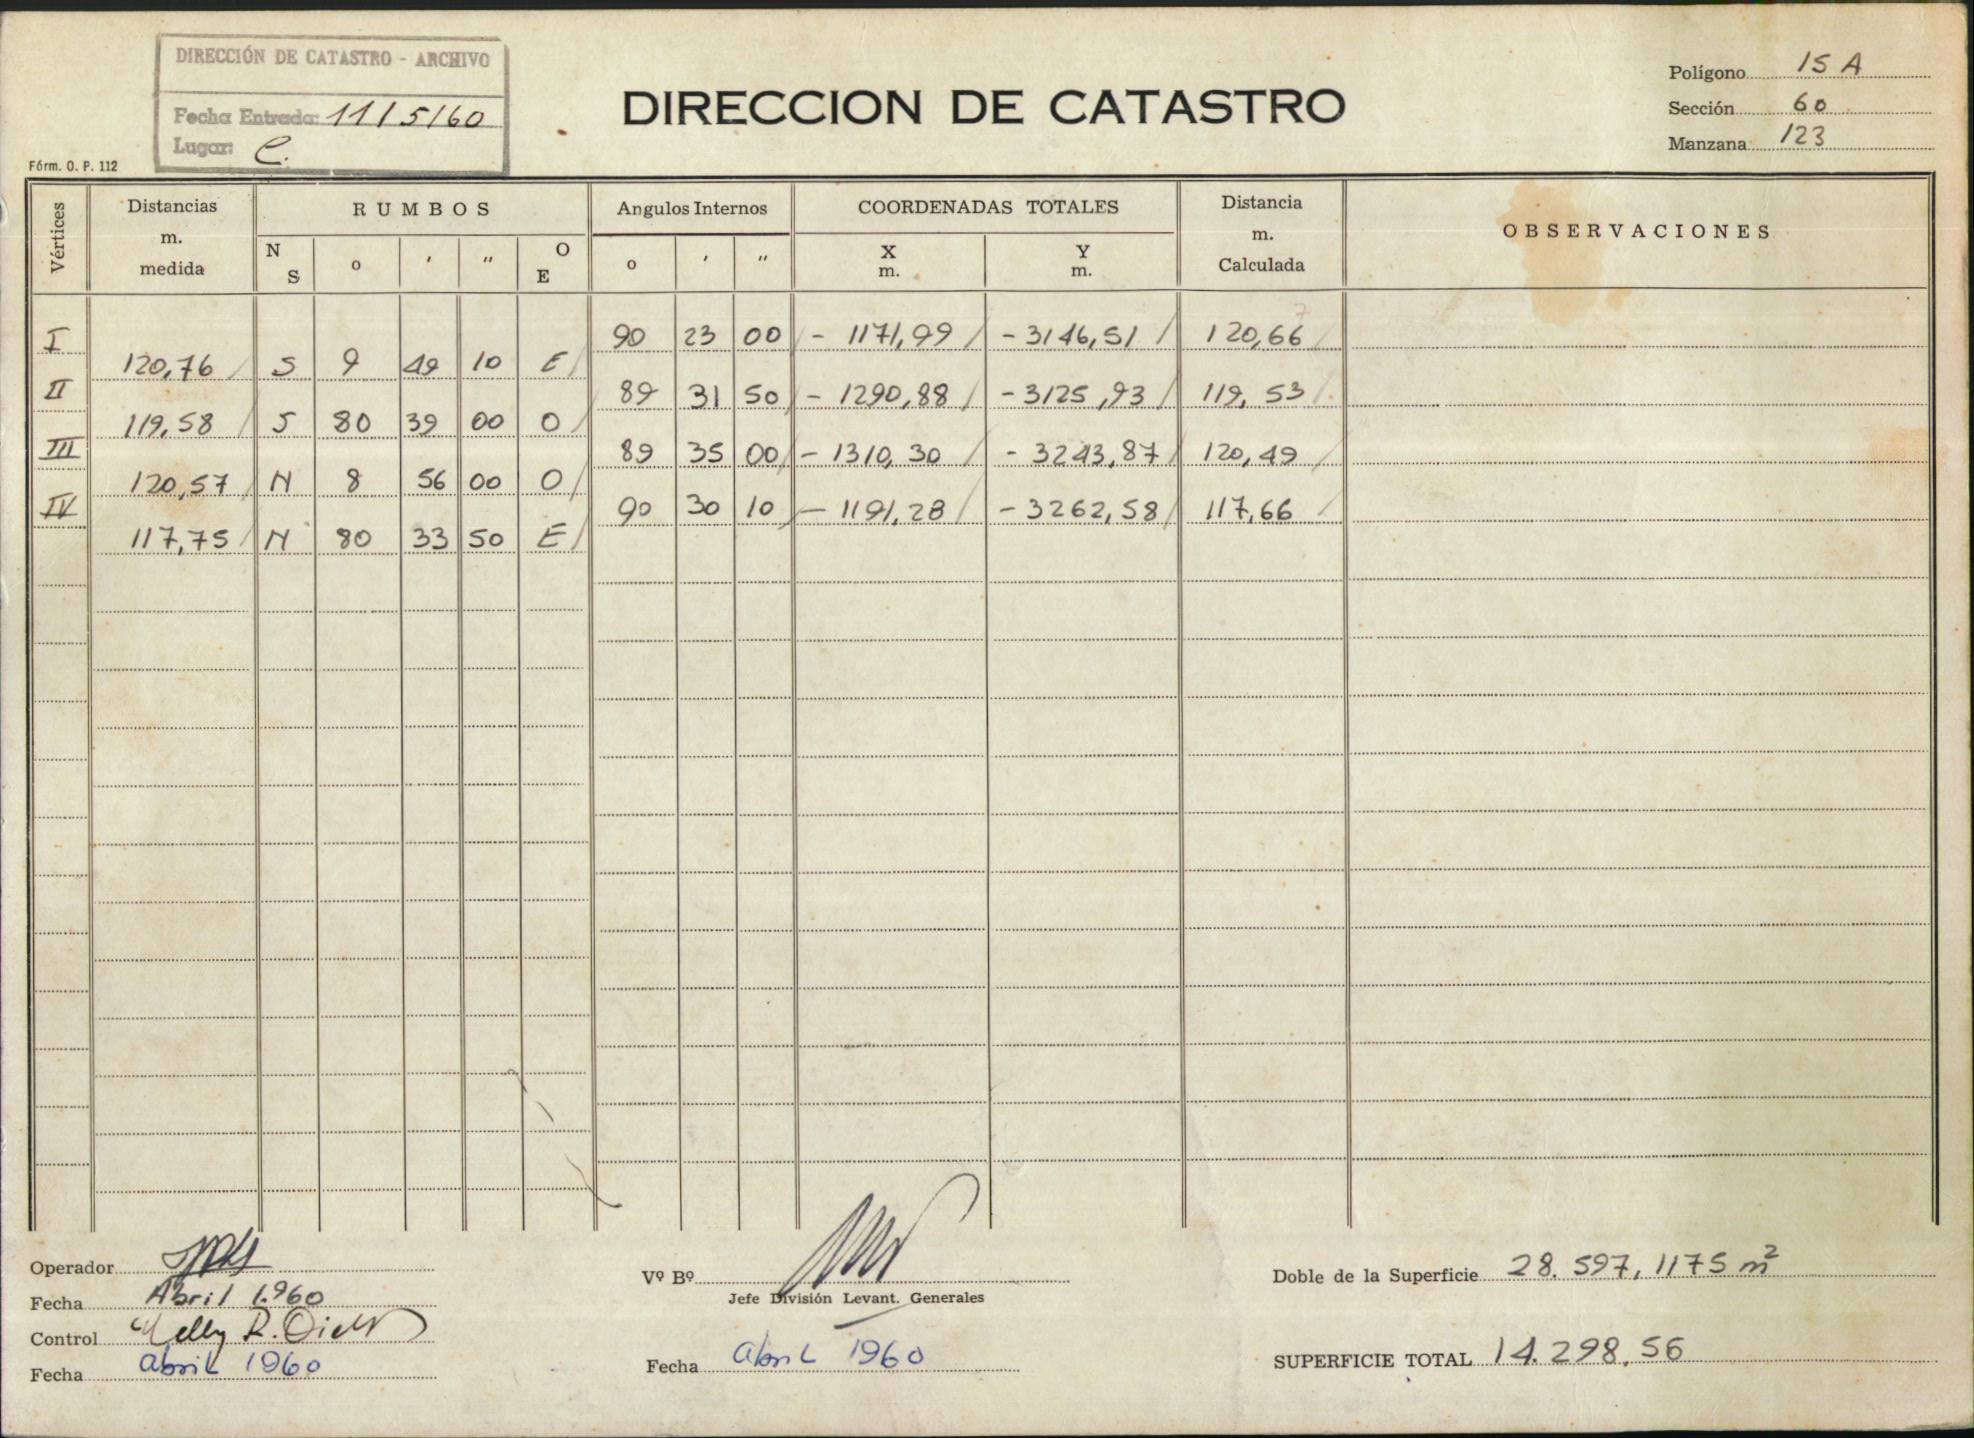 DIRECCIÓN DE CATASTRO - ARCHIVO
Fecha Entrada: 11/5/60
Lugar: C.
Fórm. O. P. 112
DIRECCION DE CATASTRO
Polígono 15 A
Sección 60
Manzana 123
Vértices
Distancias m. medida
RUMBOS
N S o ' " O E
Angulos Internos
o ' "
COORDENADAS TOTALES
X m. Y m.
Distancia m. Calculada
OBSERVACIONES
I 90 23 00 - 1171,99 - 3146,51 120,66
120,76 S 9 49 10 E
II 89 31 50 - 1290,88 - 3125,93 119,53
119,58 S 80 39 00 O
III 89 35 00 - 1310,30 - 3243,87 120,49
120,57 N 8 56 00 O
IV 90 30 10 - 1191,28 - 3262,58 117,66
117,75 N 80 33 50 E
Operador
Fecha Abril 1.960
Control Nelly R.
Fecha abril 1960
Vº Bº
Jefe División Levant. Generales
Fecha abril 1960
Doble de la Superficie 28.597,1175 m²
SUPERFICIE TOTAL 14.298,56